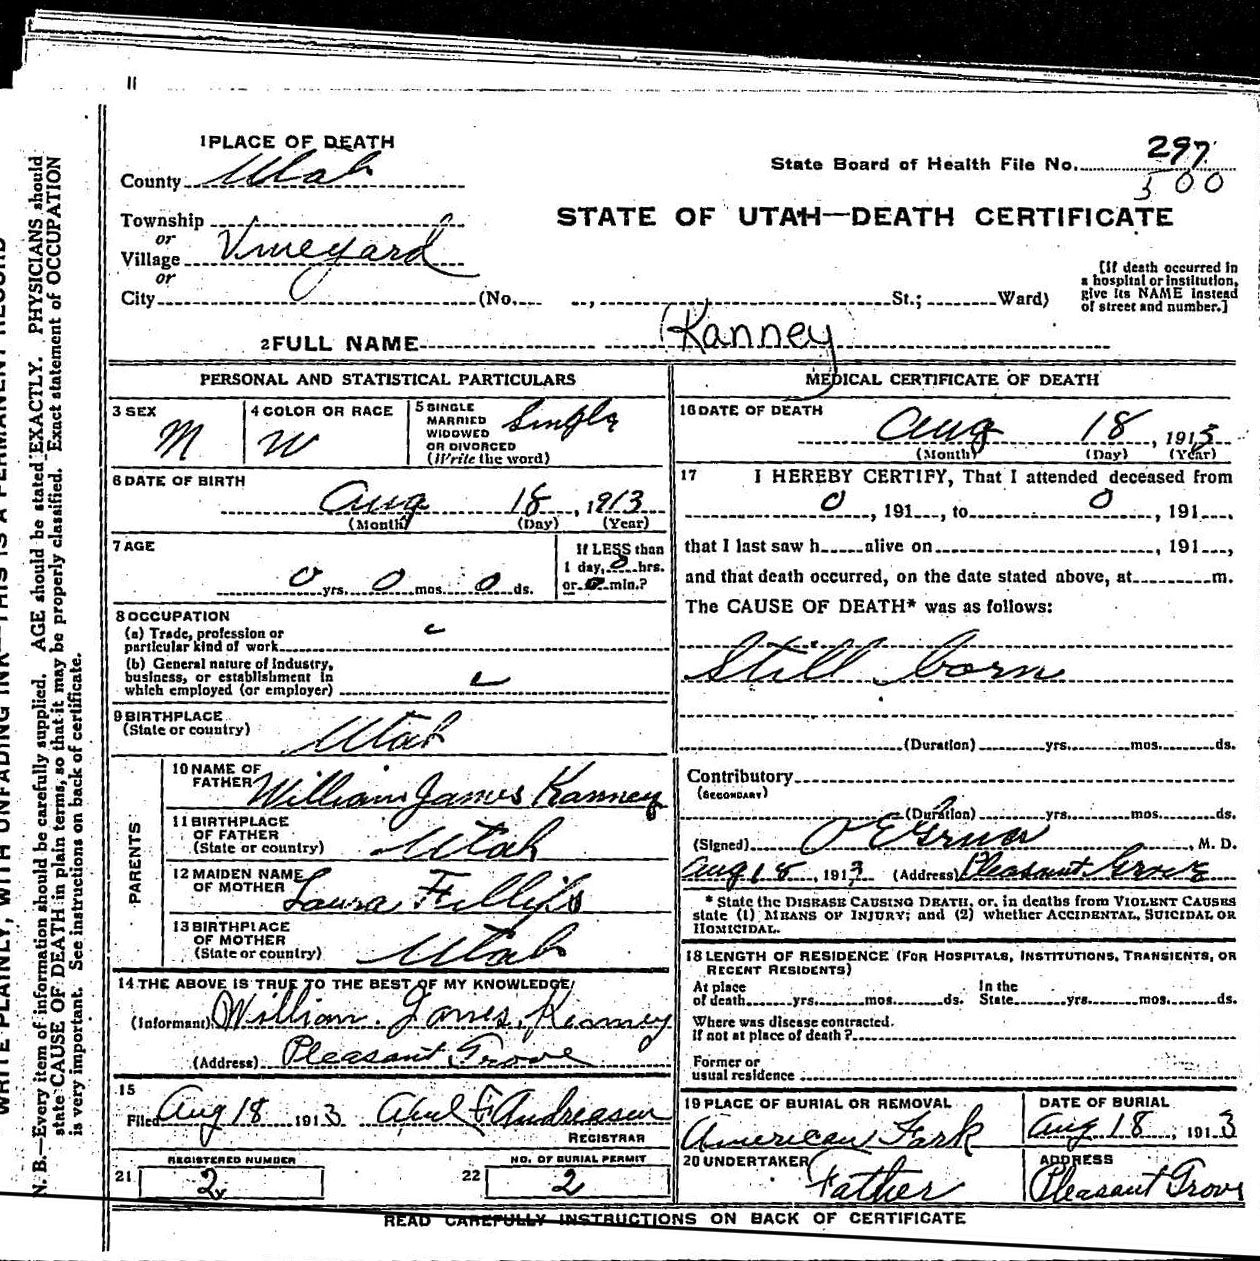 11
1 PLACE OF DEATH
County Utah
State Board of Health File No. 297
500
STATE OF UTAH—DEATH CERTIFICATE
Township
or
Village Vineyard
or
City (No. , St.; Ward)
[If death occurred in
a hospital or institution,
give its NAME instead
of street and number.]
2 FULL NAME (Kanney
PERSONAL AND STATISTICAL PARTICULARS
3 SEX
M
4 COLOR OR RACE
W
5 SINGLE
MARRIED
WIDOWED
OR DIVORCED
(Write the word)
Single
6 DATE OF BIRTH
Aug 18, 1913
(Month) (Day) (Year)
7 AGE
0 yrs. 0 mos. 0 ds.
If LESS than
1 day, 0 hrs.
or 0 min.?
8 OCCUPATION
(a) Trade, profession or
particular kind of work
(b) General nature of Industry,
business, or establishment in
which employed (or employer)
9 BIRTHPLACE
(State or country) Utah
PARENTS
10 NAME OF
FATHER William James Kanney
11 BIRTHPLACE
OF FATHER
(State or country) Utah
12 MAIDEN NAME
OF MOTHER Laura Fillips
13 BIRTHPLACE
OF MOTHER
(State or country) Utah
14 THE ABOVE IS TRUE TO THE BEST OF MY KNOWLEDGE
(Informant) William James Kanney
(Address) Pleasant Grove
15
Filed Aug 18 1913 Abel F Andreasen
REGISTRAR
21 REGISTERED NUMBER
2
22 NO. OF BURIAL PERMIT
2
MEDICAL CERTIFICATE OF DEATH
16 DATE OF DEATH
Aug 18, 1913
(Month) (Day) (Year)
17 I HEREBY CERTIFY, That I attended deceased from
0, 191 , to 0, 191 ,
that I last saw h alive on , 191 ,
and that death occurred, on the date stated above, at m.
The CAUSE OF DEATH* was as follows:
Still born
(Duration) yrs. mos. ds.
Contributory
(SECONDARY)
(Duration) yrs. mos. ds.
(Signed) O E Grua, M. D.
Aug 18, 1913 (Address) Pleasant Grove
* State the DISEASE CAUSING DEATH, or, in deaths from VIOLENT CAUSES
state (1) MEANS OF INJURY; and (2) whether ACCIDENTAL, SUICIDAL OR
HOMICIDAL.
18 LENGTH OF RESIDENCE (FOR HOSPITALS, INSTITUTIONS, TRANSIENTS, OR
RECENT RESIDENTS)
At place
of death yrs. mos. ds.
In the
State yrs. mos. ds.
Where was disease contracted.
If not at place of death?
Former or
usual residence
19 PLACE OF BURIAL OR REMOVAL
American Fork
DATE OF BURIAL
Aug 18, 1913
20 UNDERTAKER
Father
ADDRESS
Pleasant Grove
READ CAREFULLY INSTRUCTIONS ON BACK OF CERTIFICATE
WRITE PLAINLY, WITH UNFADING INK—THIS IS A PERMANENT RECORD
N. B.—Every item of information should be carefully supplied. AGE should be stated EXACTLY. PHYSICIANS should
state CAUSE OF DEATH in plain terms, so that it may be properly classified. Exact statement of OCCUPATION
is very important. See instructions on back of certificate.